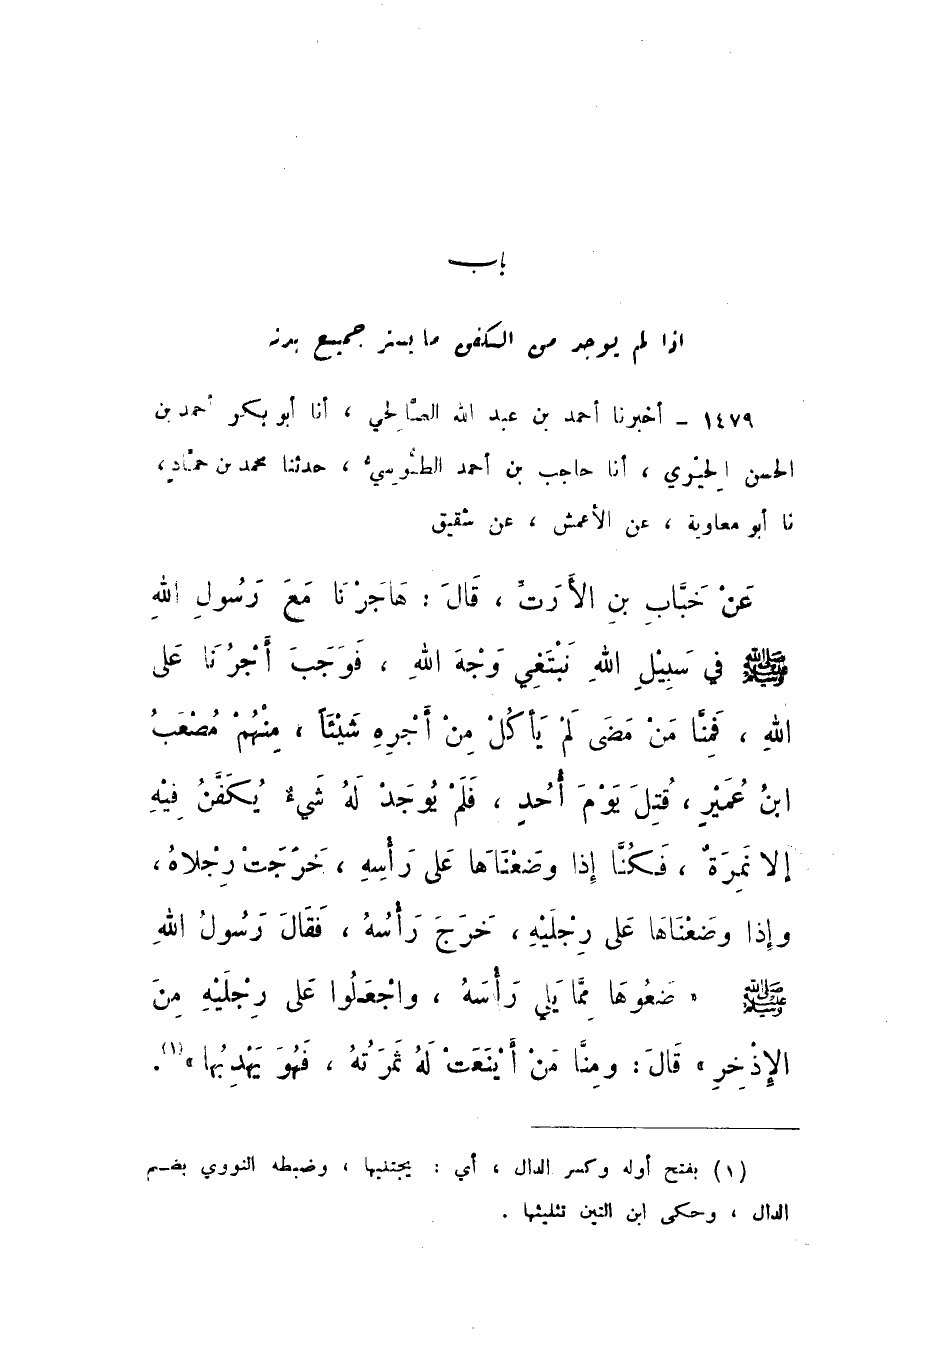 باب
اذا لم يوجد من الكفن ما يستر جميع بدنه
١٤٧٩ – أخبرنا أحمد بن عبد الله الصَّالحي ، أنا أبو بكر أحمد بن
الحسن الحِيْري ، أنا حاجب بن أحمد الطُّوسيُّ ، حدثنا محمد بن حمَّادٍ ،
نا أبو معاوية ، عن الأعمش ، عن شقيق
عَنْ خَبَّابِ بنِ الأَرَتِّ ، قَالَ : هَاجَرْنَا مَعَ رَسُولِ اللهِ
ﷺ في سَبِيْلِ اللهِ نَبْتَغِي وَجْهَ اللهِ ، فَوَجَبَ أَجْرُنَا عَلى
اللهِ ، فَمِنَّا مَنْ مَضَى لَمْ يَأكُلْ مِنْ أَجْرِهِ شَيْئَاً ، مِنْهُمْ مُصْعَبُ
ابنُ عُمَيْرٍ ، قُتِلَ يَوْمَ أُحُدٍ ، فَلَمْ يُوجَدْ لَهُ شَيءٌ يُكَفَّنُ فِيْهِ
إلا نَمِرَةٌ ، فَكُنَّا إذا وضَعْنَاهَا عَلى رَأْسِهِ ، خَرَجَتْ رِجْلاهُ ،
وإذا وضَعْنَاهَا عَلى رِجْلَيْهِ ، خَرَجَ رَأْسُهُ ، فَقَالَ رَسُولُ اللهِ
ﷺ « ضَعُوهَا مِمَّا يَلي رَأْسَهُ ، واجْعَلُوا عَلى رِجْلَيْهِ مِنَ
الإِذْخِرِ » قَالَ : ومِنَّا مَنْ أَيْنَعَتْ لَهُ ثَمَرَتُهُ ، فَهُوَ يَهْدِبُها »(١) .
(١) بفتح أوله وكسر الدال ، أي : يجتنيها ، وضبطه النووي بضم
الدال ، وحكى ابن التين تثليثها .